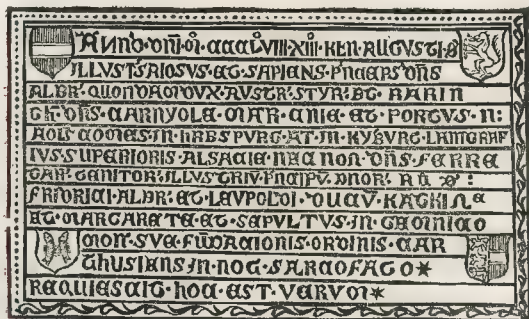 Anno·dni·m̊·ccclviii·xiii·kln·augusti·ø
illustriosus·et·sapiens·p'nceps·dns
albr·quondam·dux·austr·styr·et·karin
th·dns·carnyole·mar·chie·et·portus·n:
aois·comes·in·hbspurg·at·in·kyburg·lantgraf
ius·superioris·alsacie·necnon·dns·ferre
tar·genitor·illustriu·p'ncipu·dnor·
fridrici·albr·et·leupoldi·
et·margarete·et·sepultus·in·
mon·sue·fudacionis·ordinis·car
thusiens·in·hoc·sarcofago*
requiescit·hoc·est·verum*